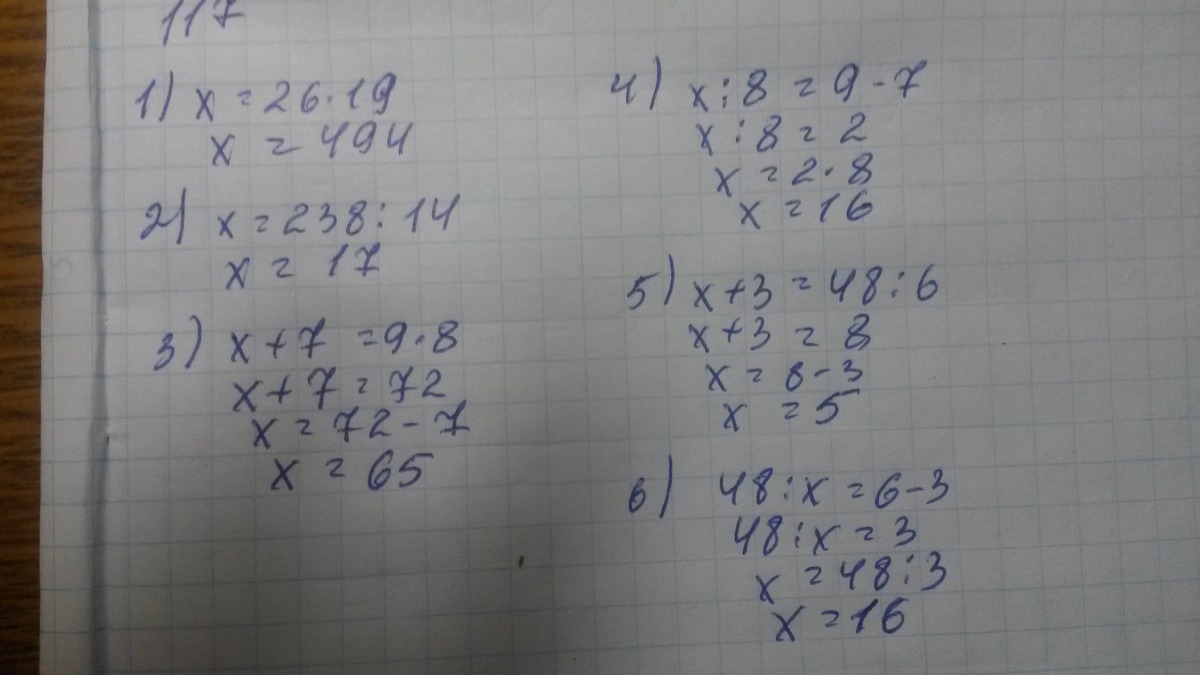 117
1) x = 26·19
x = 494
2) x = 238 : 14
x = 17
3) x + 7 = 9·8
x + 7 = 72
x = 72 - 7
x = 65
4) x : 8 = 9 - 7
x : 8 = 2
x = 2·8
x = 16
5) x + 3 = 48 : 6
x + 3 = 8
x = 8 - 3
x = 5
6) 48 : x = 6 - 3
48 : x = 3
x = 48 : 3
x = 16